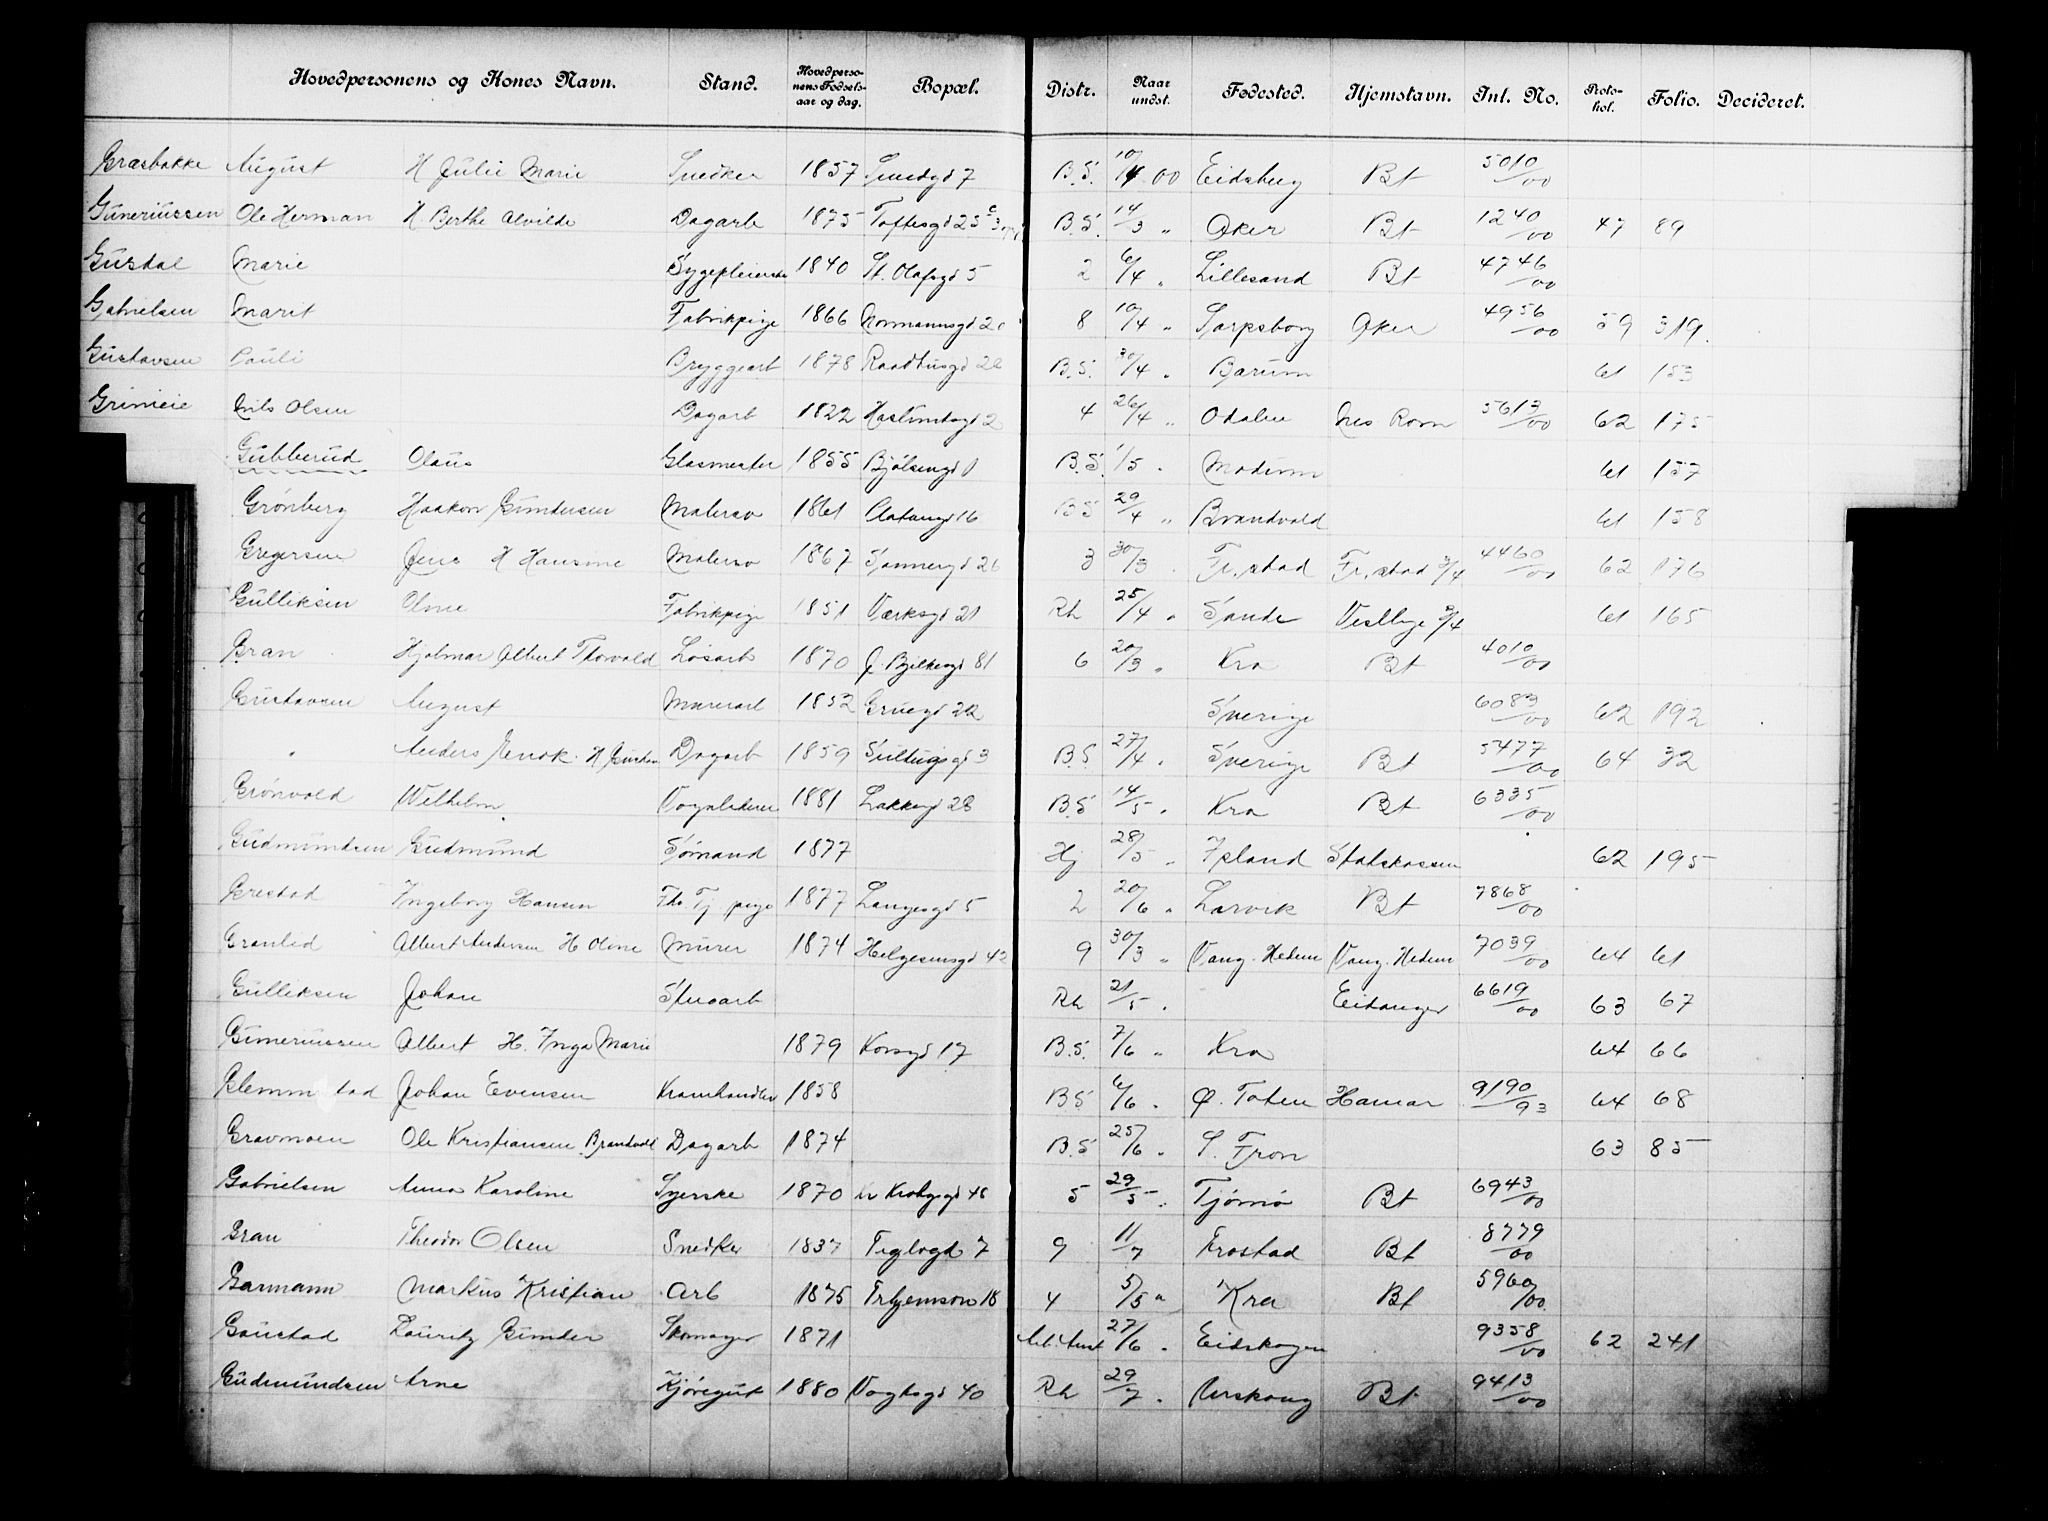 Hovedpersonens og Kones Navn. Stand. Hovedpersonens Fødselsaar og dag. Bopæl. Distr. Naar undst. Fødested. Hjemstavn. Int. No. Protokol. Folio. Decideret.
Græsbakke August H Julie Marie Snedker 1857 7 B.S. 10/4 00 Eidsberg Bt 5010/00
Guneriussen Ole Herman H. Berthe Alvilde Dagarb 1875 Toftesgd B.S. 14/3 " Aker Bt 1240/00 47 89
Gusdal Marie Sygepleierske 1840 St. Olafsgd 5 2 6/4 " Lillesand Bt 4746/00
Gabrielsen Marit Fabrikpige 1866 Normannsgd 20 8 10/4 " Sarpsborg Aker 4956/00 59 319.
Gustavsen Pauli Bryggearb 1878 Raadhusgd 28 B.S. 30/4 " Bærum 61 153
Grimeie Nils Olsen Dagarb 1822 2 4 26/4 " Odalen Nes Rom 5613/00 62 175
Gubberud Olaus Glasmester 1855 Bjølsengd B.S. 1/5 " Modum 61 157
Grønberg Haakon Gundersen Malersv 1861 16 B.S 29/4 " Brandvold 61 158
Gregersen Jens H Hansine Malersv 1867 Sannergd 26 3 30/3 Fr.stad Fr.stad 3/4 4460/00 62 176
Gulliksen Oline Fabrikpige 1851 Værksgd 21 Rh 25/4 " Sande Vestbye 3/4 61 165
Gran Hjalmar Albert Thorvald Løsarb 1870 J. Bjelkesgd 81 6 20/3 " Kra Bt 4010/00
Gustavsen August Murerarb 1852 Gruegd 22 Sverige 6083/00 62 192
" Anders H Dagarb 1859 3 B.S 27/4 " Sverige Bt 5477/00 64 32
Grønvold Wilhelm Vognlakerer 1881 Lakkegd 28 B.S 14/5 " Kra Bt 6335/00
Gudmundsen Gudmund Sømand 1877 Hj 28/5 " Island Statskassen 62 195
Grestad Ingeborg Hansen Fhv Tj pige 1877 Langesgd 5 2 20/6 " Larvik Bt 7868/00
Granlid Albert Andersen H Oline Murer 1874 Helgesensgd 42 9 30/3 " Vang. Hedem Vang. Hedem 7039/00 64 61
Gulliksen Johan Stuearb Rh 21/5 " Eidanger 6619/00 63 67
Guneriussen Albert H. Inga Marie 1879 Korsgd 17 B.S. 7/6 " Kra 64 66
Glemm tad Johan Evensen Kramhandler 1858 B S 6/6 " Ø. Toten Hamar 9190/93 64 68
Gravmoen Ole Kristiansen Brandvold Dagarb 1874 B.S 25/6 " S. Fron 63 85
Gabrielsen Anna Karoline Syerske 1870 Kr Krohgsgd 48 5 29/5 " Tjømø Bt 6943/00
Gran Theodor Olsen Snedker 1837 Teglvgd 7 9 11/7 Frostad Bt 8779/00
Garmann Markus Kristian Arb 1875 18 4 5/5 " Kra Bt 5960/00
Gaustad Lauritz Gunder Skomager 1871 Arb. Anst 27/6 " Eidskogen 9358/00 62 241
Gudmundsen Arne Kjøregut 1880 Vogtsgd 40 Rh 29/7 " Urskoug Bt 9413/00